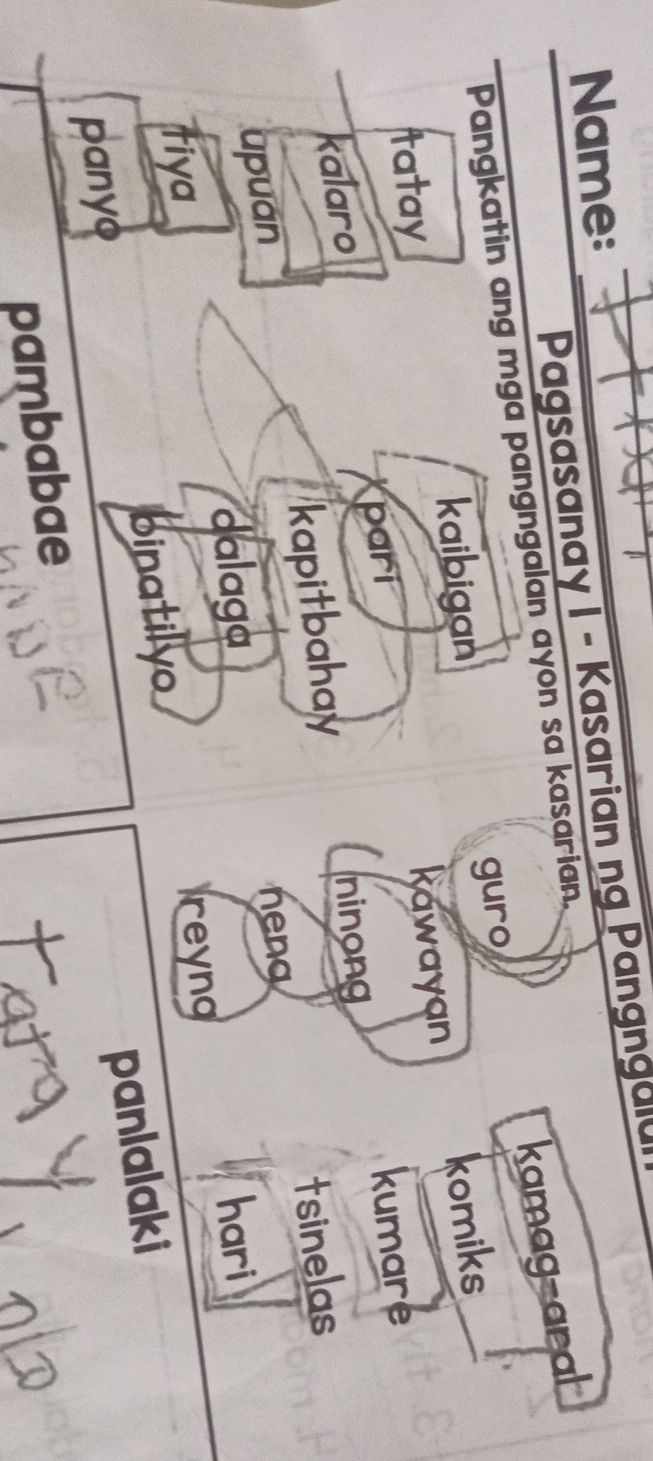 Name:
Pagsasanay I - Kasarian ng Pangngalan
Pangkatin ang mga pangngalan ayon sa kasarian.
tatay kaibigan guro kamag-aral
kalaro pari kawayan komiks
upuan kapitbahay ninong kumare
tiya dalaga nena tsinelas
panyo binatilyo reyna hari
pambabae panlalaki
tatay